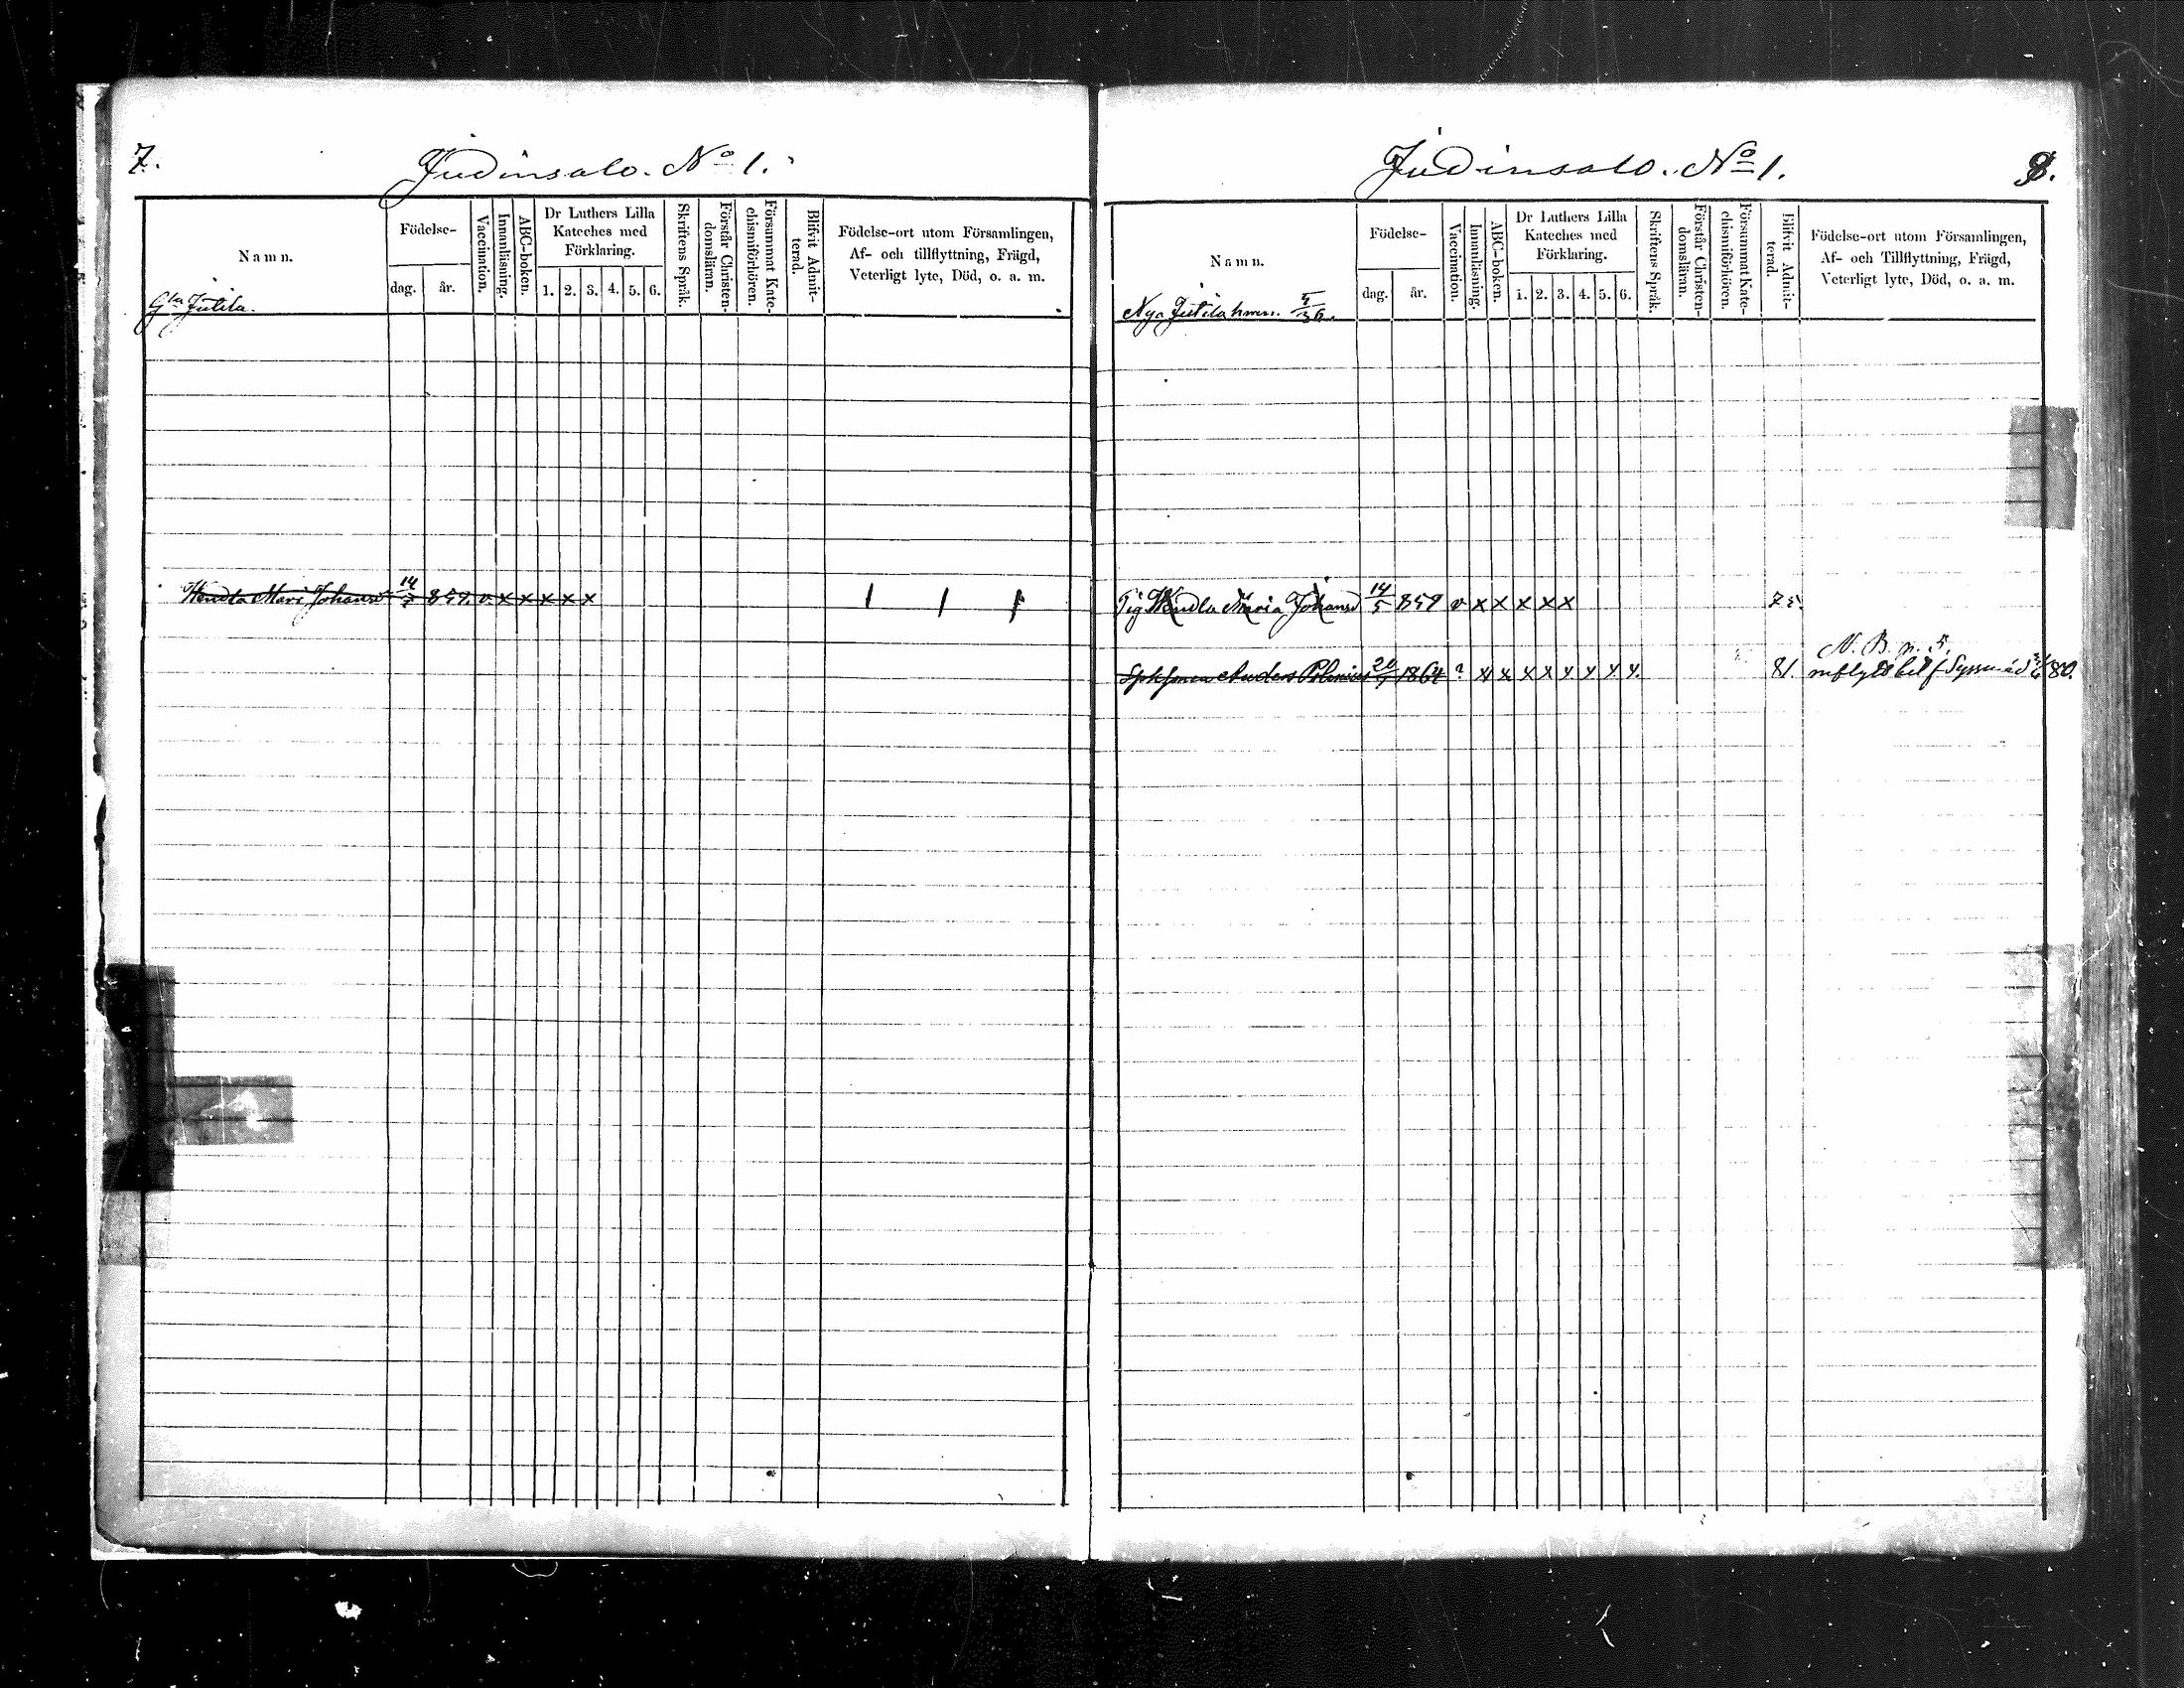 7.
Judinsalo. No 1.
Namn.
Födelse-
dag.
år.
Vaccination.
Innanläsning.
ABC-boken.
Dr Luthers Lilla
Kateches med
Förklaring.
1. 2. 3. 4. 5. 6.
Skriftens Språk.
Förstår Christen-
domsläran.
Försummat Kate-
chismiförhören.
Blifvit Admit-
terad.
Födelse-ort utom Församlingen,
Af- och tillflyttning, Frägd,
Veterligt lyte, Död, o. a. m.
Gla Jutila.
Hendla Mari Johansd 14 859. v x x x x x
Judinsalo. No 1.
8.
Namn.
Födelse-
dag.
år.
Vaccination.
Innanläsning.
ABC-boken.
Dr Luthers Lilla
Kateches med
Förklaring.
1. 2. 3. 4. 5. 6.
Skriftens Språk.
Förstår Christen-
domsläran.
Försummat Kate-
chismiförhören.
Blifvit Admit-
terad.
Födelse-ort utom Församlingen,
Af- och Tillflyttning, Frägd,
Veterligt lyte, Död, o. a. m.
Nya Jutila hmn.
Pig Hendla Maria Johansd 14/5 859 v x x x x x 75.
N. B. p. 5.
Anders 1864 ? x x x x y y y y. 81. 80.